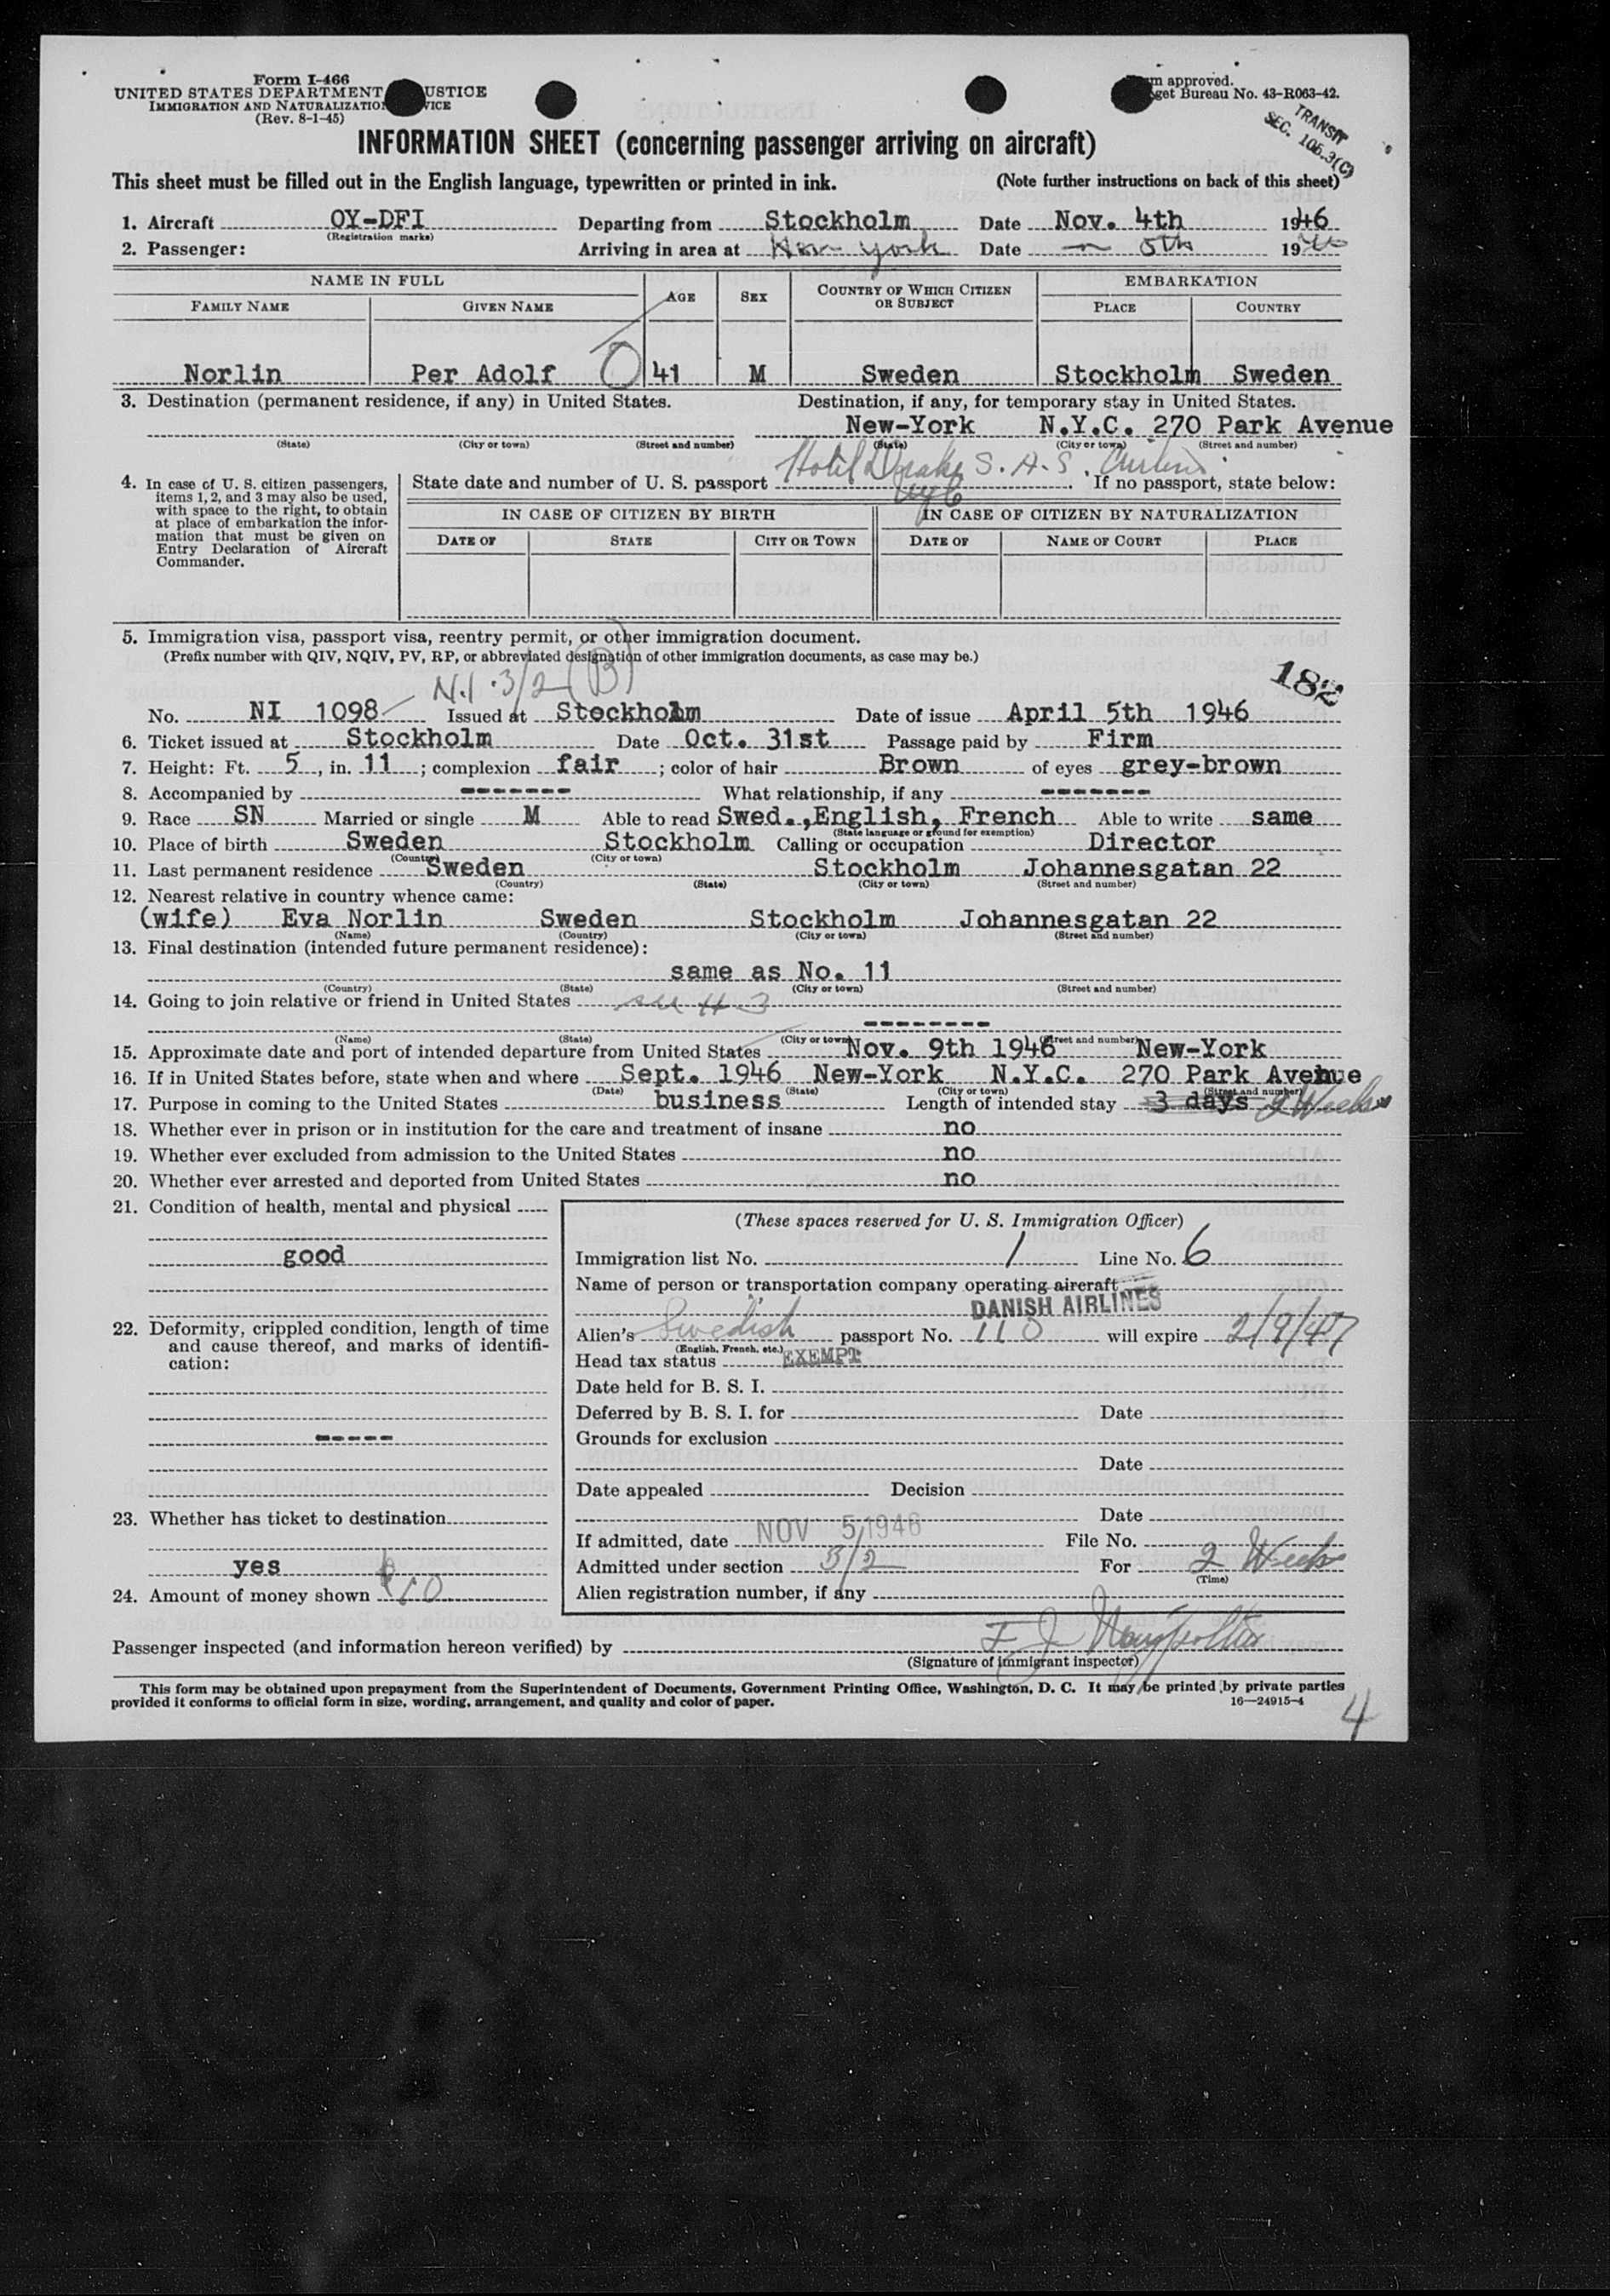 Form I-466
UNITED STATES DEPARTMENT USTICE
IMMIGRATION AND NATURALIZATIO VICE
(Rev. 8-1-45)
m approved.
get Bureau No. 43-R063-42.
TRANSIT
SEC. 105.3(C)
INFORMATION SHEET (concerning passenger arriving on aircraft)
This sheet must be filled out in the English language, typewritten or printed in ink. (Note further instructions on back of this sheet)
1. Aircraft OY-DFI Departing from Stockholm Date Nov. 4th 1946
(Registration marks)
2. Passenger: Arriving in area at New York Date 5th 1946
NAME IN FULL AGE SEX COUNTRY OF WHICH CITIZEN OR SUBJECT EMBARKATION
FAMILY NAME GIVEN NAME PLACE COUNTRY
Norlin Per Adolf 41 M Sweden Stockholm Sweden
3. Destination (permanent residence, if any) in United States. Destination, if any, for temporary stay in United States.
New-York N.Y.C. 270 Park Avenue
(State) (City or town) (Street and number) (State) (City or town) (Street and number)
Hotel Drake S.A.S.
NYC
4. In case of U. S. citizen passengers, items 1, 2, and 3 may also be used, with space to the right, to obtain at place of embarkation the information that must be given on Entry Declaration of Aircraft Commander.
State date and number of U. S. passport If no passport, state below:
IN CASE OF CITIZEN BY BIRTH IN CASE OF CITIZEN BY NATURALIZATION
DATE OF STATE CITY OR TOWN DATE OF NAME OF COURT PLACE
5. Immigration visa, passport visa, reentry permit, or other immigration document.
(Prefix number with QIV, NQIV, PV, RP, or abbreviated designation of other immigration documents, as case may be.)
N.I. 3/2 (B)
182
No. NI 1098 Issued at Stockholm Date of issue April 5th 1946
6. Ticket issued at Stockholm Date Oct. 31st Passage paid by Firm
7. Height: Ft. 5, in. 11; complexion fair; color of hair Brown of eyes grey-brown
8. Accompanied by ------- What relationship, if any -------
9. Race SN Married or single M Able to read Swed., English, French Able to write same
(State language or ground for exemption)
10. Place of birth Sweden Stockholm Calling or occupation Director
(Country) (City or town)
11. Last permanent residence Sweden Stockholm Johannesgatan 22
(Country) (State) (City or town) (Street and number)
12. Nearest relative in country whence came:
(wife) Eva Norlin Sweden Stockholm Johannesgatan 22
(Name) (Country) (City or town) (Street and number)
13. Final destination (intended future permanent residence):
same as No. 11
(Country) (State) (City or town) (Street and number)
14. Going to join relative or friend in United States see # 3
--------
(Name) (State) (City or town) (Street and number)
15. Approximate date and port of intended departure from United States Nov. 9th 1946 New-York
16. If in United States before, state when and where Sept. 1946 New-York N.Y.C. 270 Park Avenue
(Date) (State) (City or town) (Street and number)
17. Purpose in coming to the United States business Length of intended stay 3 days 2 Weeks
18. Whether ever in prison or in institution for the care and treatment of insane no
19. Whether ever excluded from admission to the United States no
20. Whether ever arrested and deported from United States no
21. Condition of health, mental and physical
good
22. Deformity, crippled condition, length of time and cause thereof, and marks of identification:
-----
23. Whether has ticket to destination
yes
24. Amount of money shown $10
(These spaces reserved for U. S. Immigration Officer)
Immigration list No. 1 Line No. 6
Name of person or transportation company operating aircraft
DANISH AIRLINES
Alien's Swedish passport No. 110 will expire 2/9/47
(English, French, etc.)
Head tax status EXEMPT
Date held for B. S. I.
Deferred by B. S. I. for Date
Grounds for exclusion
Date
Date appealed Decision
Date
If admitted, date NOV 5 1946 File No.
Admitted under section 3/2 For 2 Weeks
(Time)
Alien registration number, if any
Passenger inspected (and information hereon verified) by
(Signature of immigrant inspector)
This form may be obtained upon prepayment from the Superintendent of Documents, Government Printing Office, Washington, D. C. It may be printed by private parties
provided it conforms to official form in size, wording, arrangement, and quality and color of paper. 16—24915-4
4